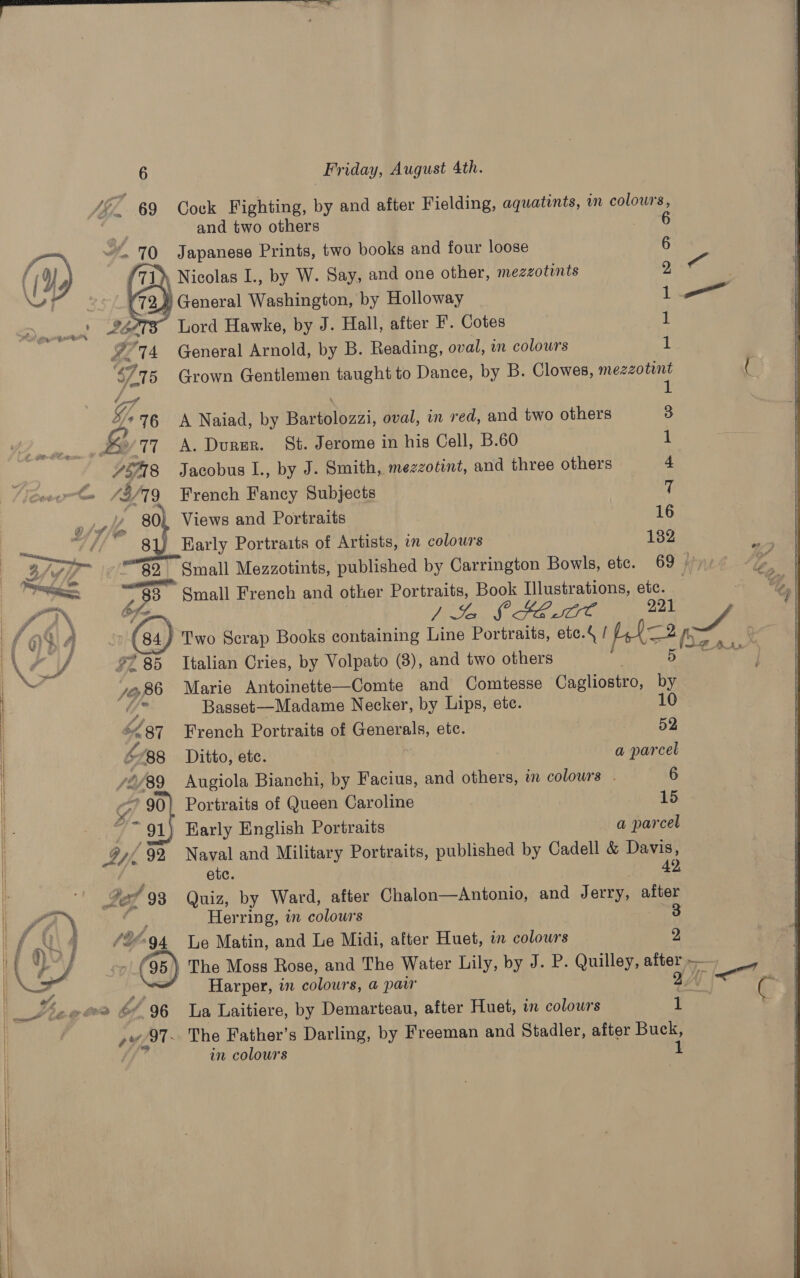 6 Friday, August 4th.
69 Cock Fighting, by and after Fielding, aquatints, in colours,
and two others 6
70 Japanese Prints, two books and four loose 6
71 Nicolas I., by W. Say, and one other, mezzotints 2
72 General Washington, by Holloway 1
73 Lord Hawke, by J. Hall, after F. Cotes 1
74 General Arnold, by B. Reading, oval, in colours 1
75 Grown Gentlemen taught to Dance, by B. Clowes, mezzotint
1
76 A Naiad, by Bartolozzi, oval, in red, and two others 3
77 A. Durer. St. Jerome in his Cell, B.60 1
78 Jacobus I., by J. Smith, mezzotint, and three others 4
79 French Fancy Subjects 7
80 Views and Portraits 16
81 Early Portraits of Artists, in colours 132
82 Small Mezzotints, published by Carrington Bowls, etc. 69
83 Small French and other Portraits, Book Illustrations, etc.
221
84 Two Scrap Books containing Line Portraits, etc. 2
85 Italian Cries, by Volpato (3), and two others 5
86 Marie Antoinette—Comte and Comtesse Cagliostro, by
Basset—Madame Necker, by Lips, etc. 10
87 French Portraits of Generals, etc. 52
88 Ditto, etc. a parcel
89 Augiola Bianchi, by Facius, and others, in colours 6
90 Portraits of Queen Caroline 15
91 Early English Portraits a parcel
92 Naval and Military Portraits, published by Cadell & Davis,
etc. 42
93 Quiz, by Ward, after Chalon—Antonio, and Jerry, after
Herring, in colours 3
94 Le Matin, and Le Midi, after Huet, in colours 2
95 The Moss Rose, and The Water Lily, by J. P. Quilley, after
Harper, in colours, a pair 2
96 La Laitiere, by Demarteau, after Huet, in colours 1
97 The Father's Darling, by Freeman and Stadler, after Buck,
in colours 1